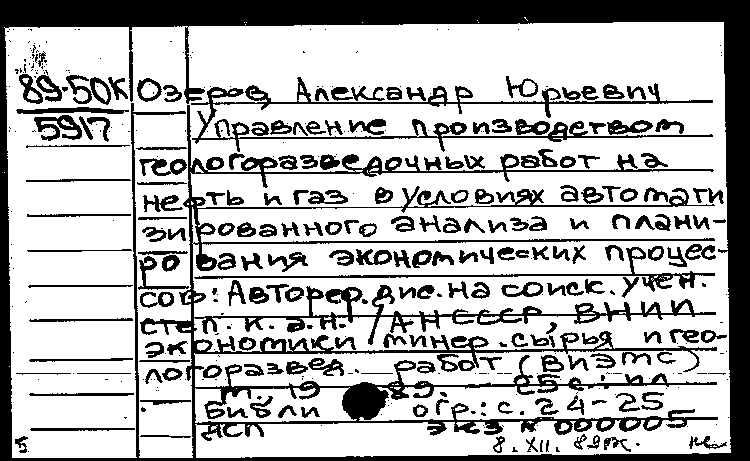 89-50К Озеров, Александр Юрьевич
5917 Управление производством
геологоразведочных работ на
нефть и газ в условиях автомати
зированного анализа и плани-
рования экономических процес-
сов: Автореф. дис. на соиск. учен.
степ. к. э. н. / АН СССР, ВНИИ
экономики минер. сырья и гео-
логоразвед. работ (ВИЭМС)
М. 19 89. 25 с.: ил
Библи огр.: с. 24-25
ДСП экз N 000005
5 8. XII. 89